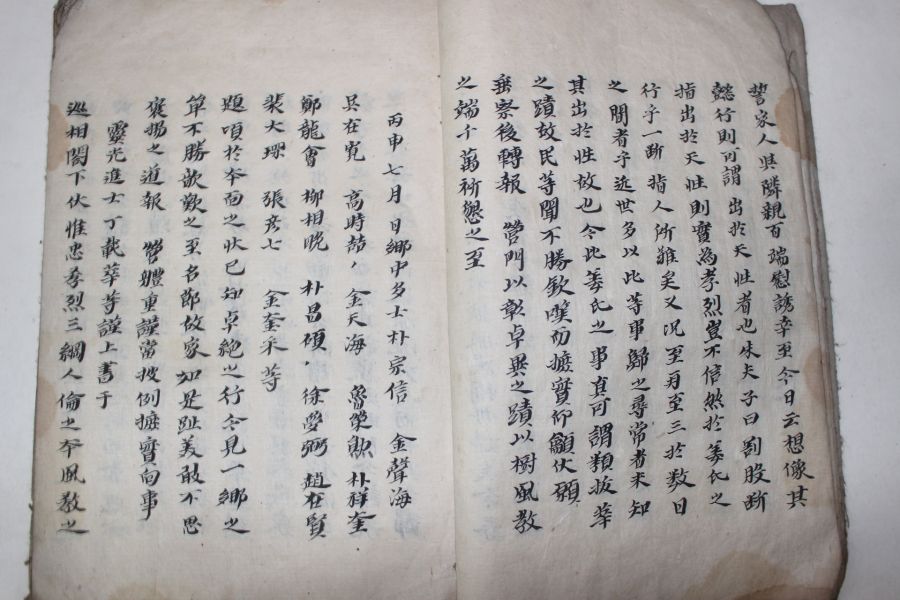 誓家人與隣親百端慰誘幸至今日云想像其
懿行則可謂出於天性者也朱夫子曰割股斷
指出於天性則實為孝烈豈不信然於姜氏之
行乎一斷指人所難矣又况至再至三於数日
之間者乎近世多以此等事歸之尋常者未知
其出於性故也今此姜氏之事真可謂類拔萃
之蹟故民等聞不勝欽嘆而摭實仰籲伏願
垂察後轉報 營門以彰卓異之蹟以樹風教
之端千萬祈懇之至
丙申七月日鄉中多士朴宗信 金聲海
吳在寬 高時喆 金天海 魯榮 朴祥奎
鄭龍會 柳相晩 朴昌碩 徐夢弼 趙在賢
裴大 張彦七 金奎采 等
題項於本面之狀已知卓絶之行今見一鄉之
單不勝歎歎之至名節故家如是趾美敢不思
褒揚之道報 營體重謹當披例摭實向事
靈光進士丁載華等謹上書于
巡相閤下伏惟忠孝烈三綱人倫之本風教之